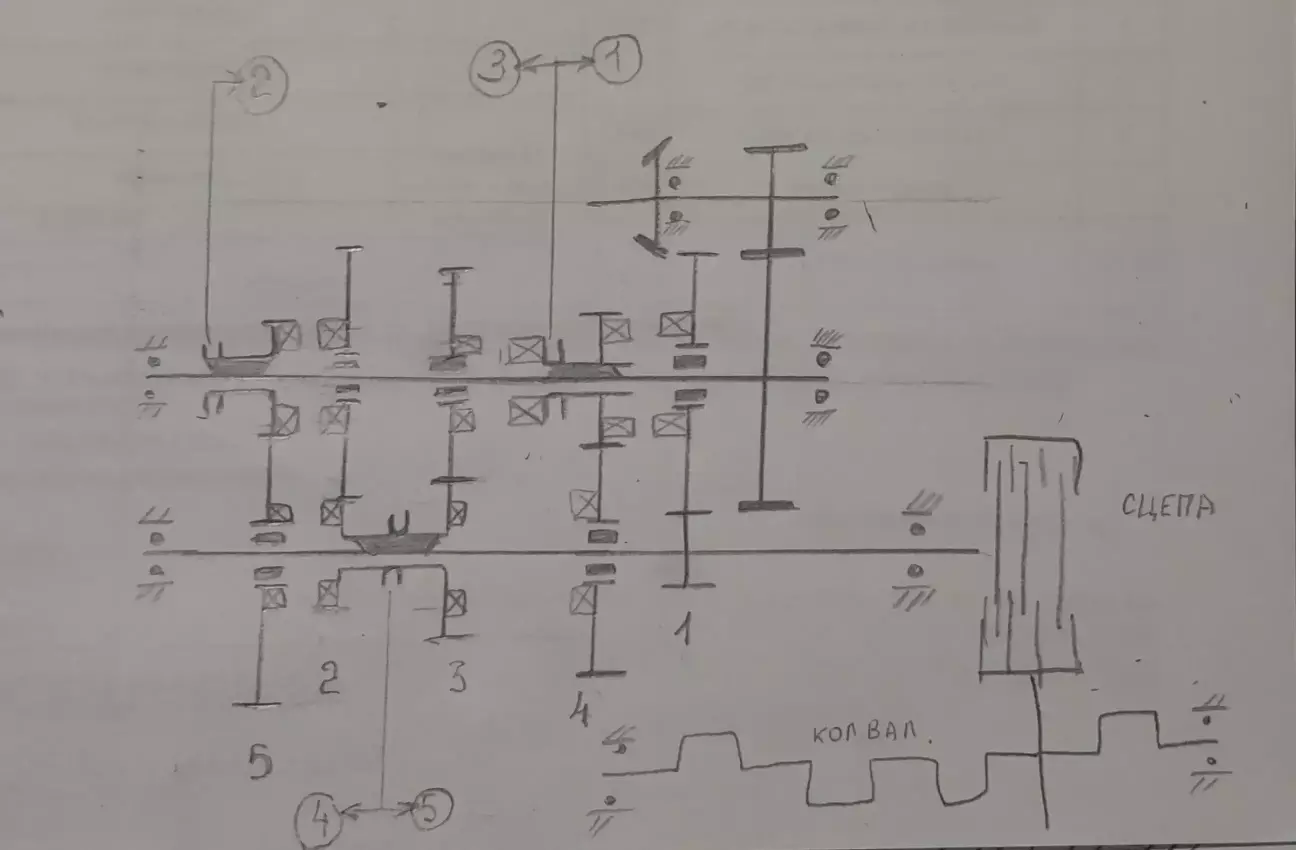 3 1
2
СЦЕПА
1
2 3
4
КОЛВАЛ.
5
4 5